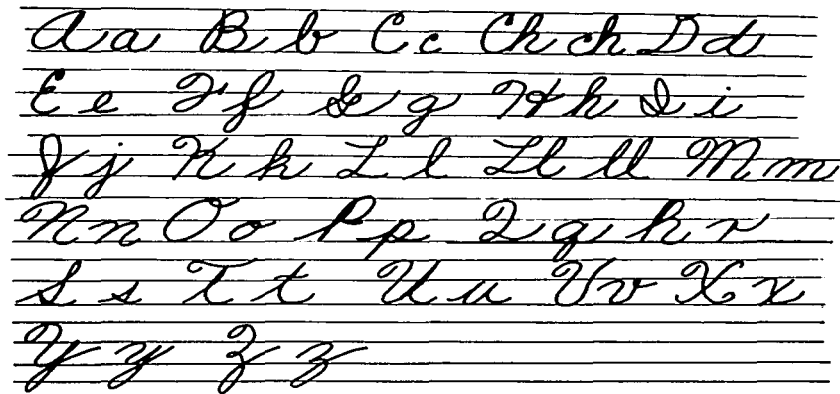 A a B b C c Ch ch D d
E e F f G g H h I i
J j K k L l Ll ll M m
N n O o P p Q q R r
S s T t U u V v X x
Y y Z z